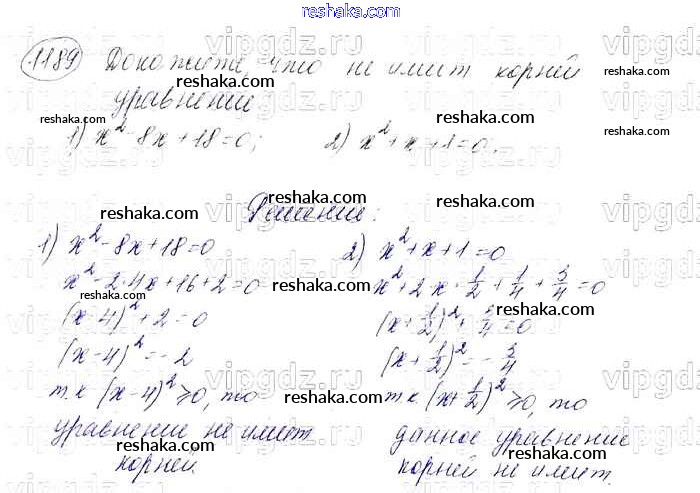 reshaka.com
1189 Докажите, что не имеет корней
уравнение
1) x² - 8x + 18 = 0; 2) x² + x + 1 = 0.
Решение:
1) x² - 8x + 18 = 0
x² - 2·4x + 16 + 2 = 0
(x - 4)² + 2 = 0
(x - 4)² = -2
т.к (x - 4)² ≥ 0, то
уравнение не имеет
корней.
2) x² + x + 1 = 0
x² + 2x · 1/2 + 1/4 + 3/4 = 0
(x + 1/2)² + 3/4 = 0
(x + 1/2)² = - 3/4
т.к (x + 1/2)² ≥ 0, то
данное уравнение
корней не имеет.